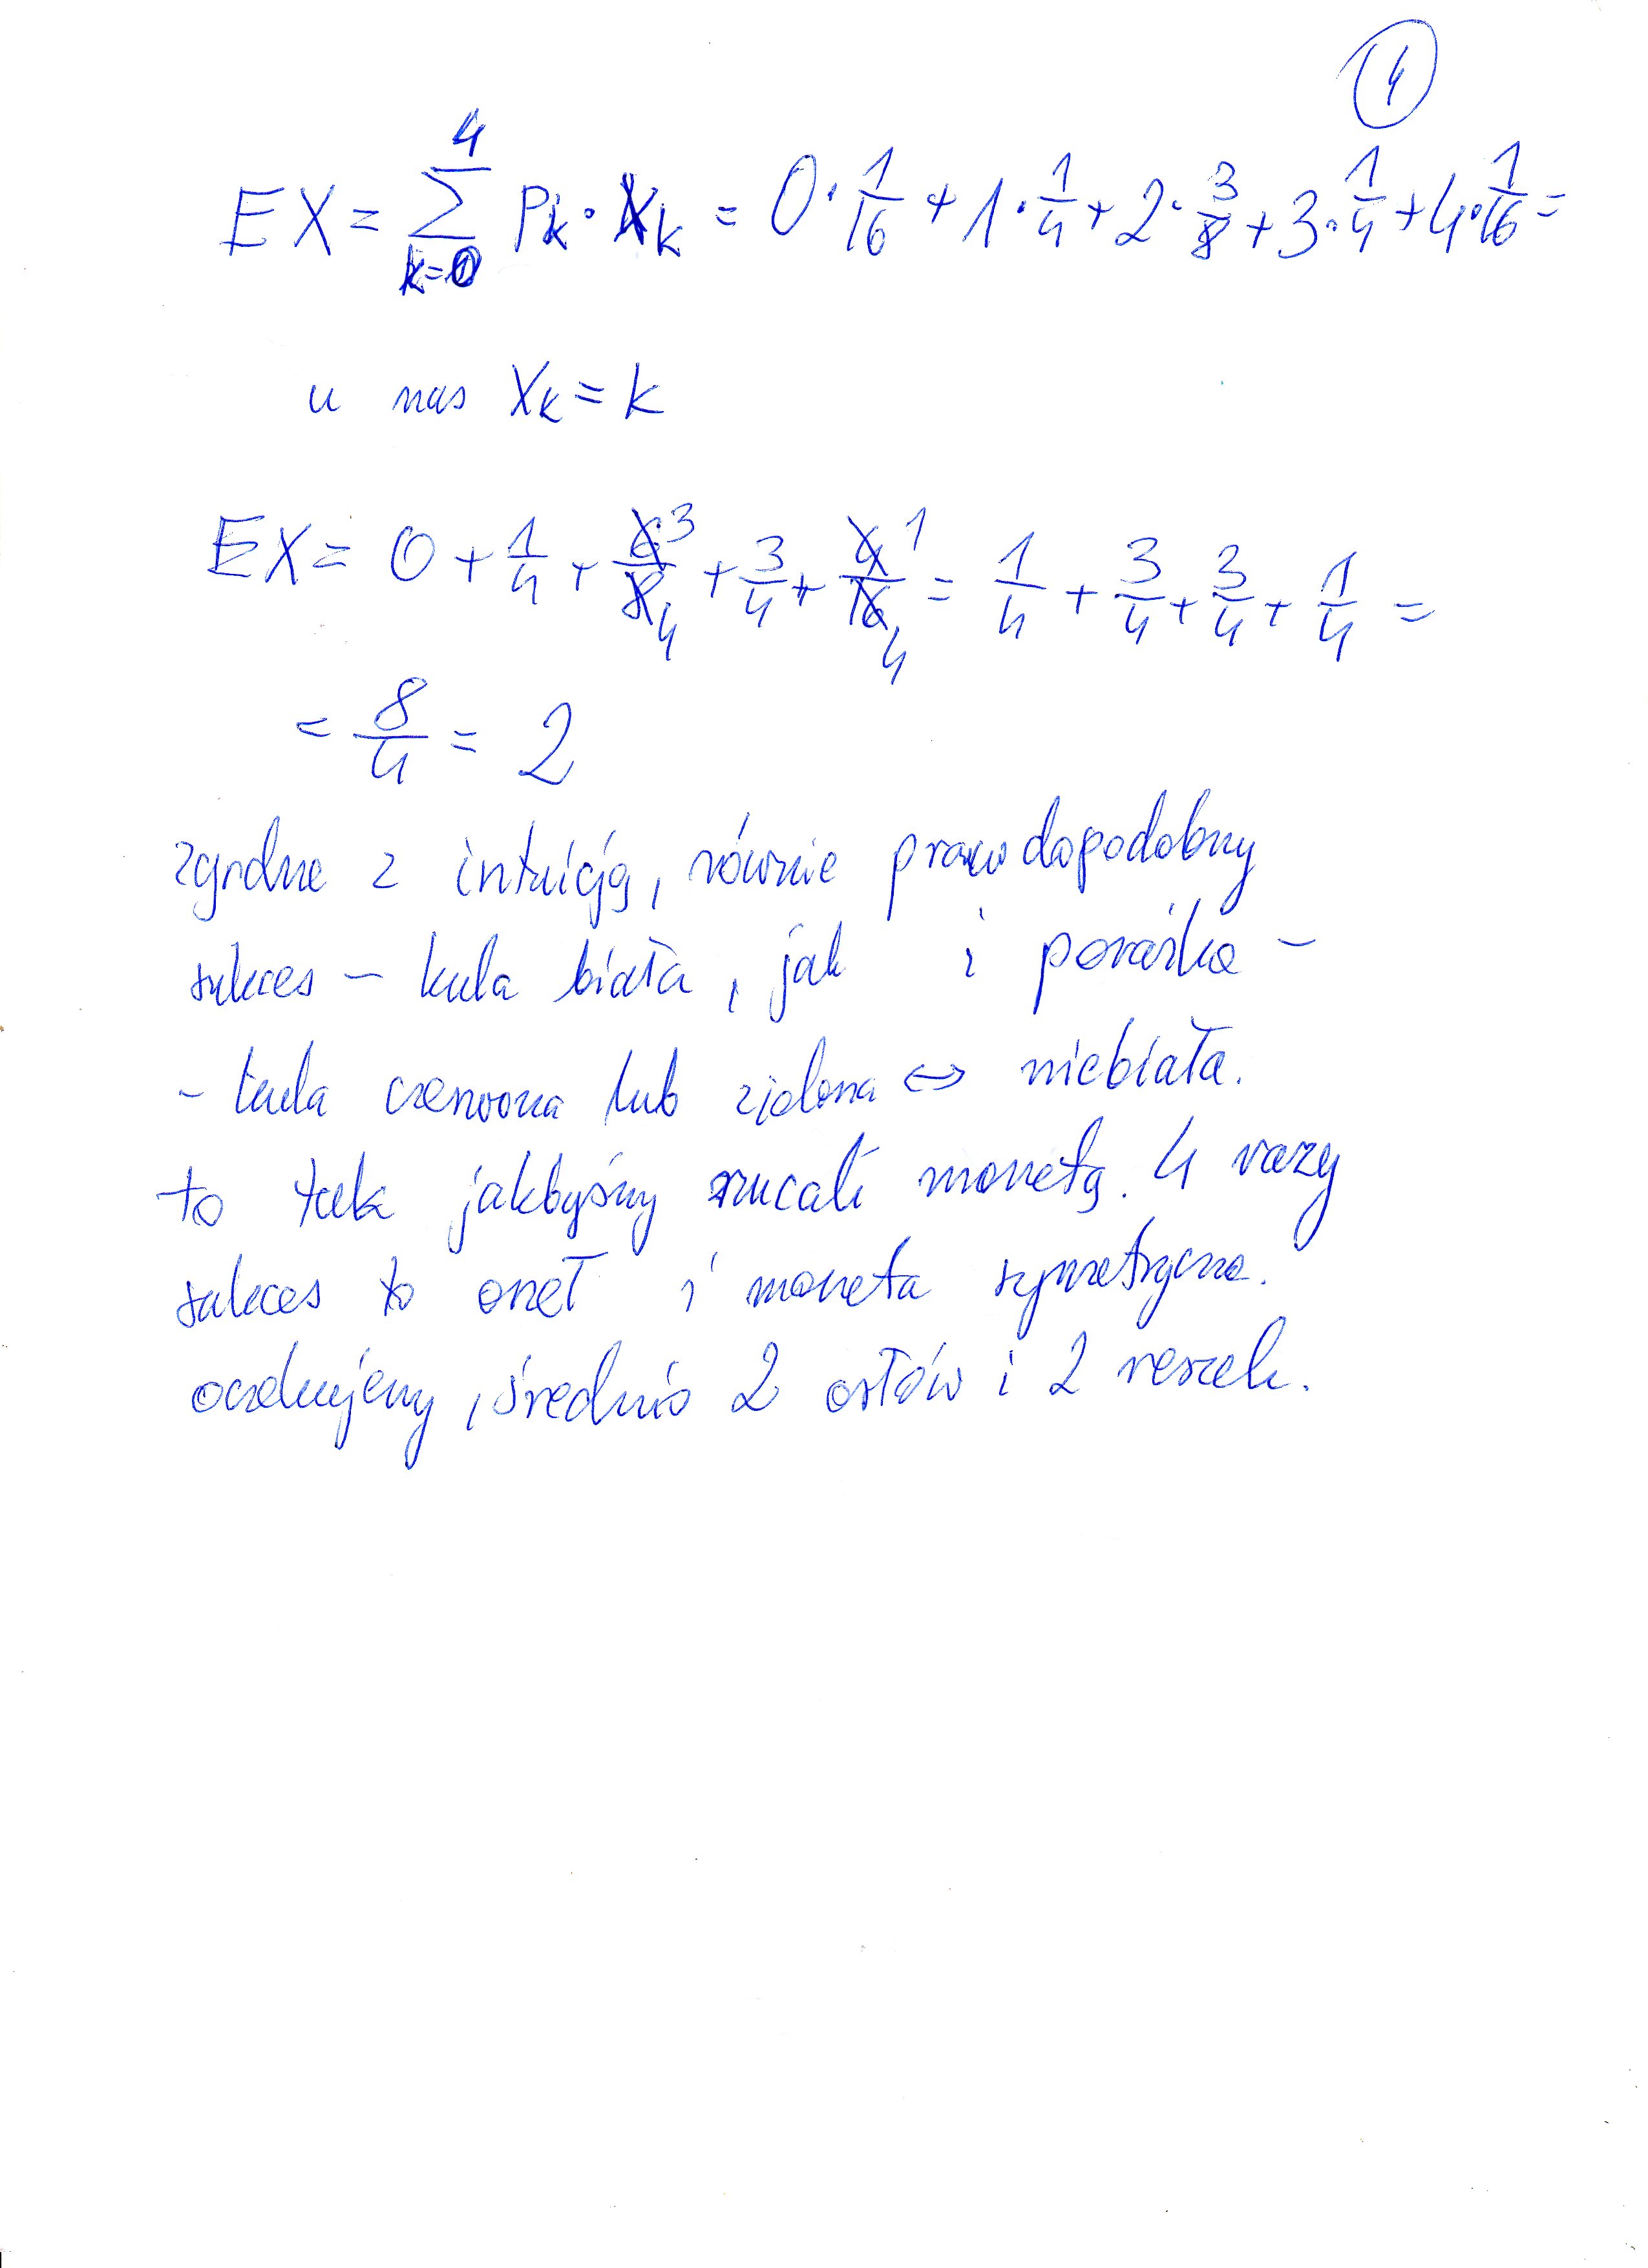 4
EX = \sum_{k=0}^{4} p_k · x_k = 0 · 1/16 + 1 · 1/4 + 2 · 3/8 + 3 · 1/4 + 4 · 1/16 =
u nas x_k = k
EX = 0 + 1/4 + 6/8 3/4 + 3/4 + 4/16 1/4 = 1/4 + 3/4 + 3/4 + 1/4 =
= 8/4 = 2
zgodne z intuicją, równie prawdopodobny
sukces – kula biała, jak i porażka –
– kula czerwona lub zielona <=> niebiała.
to tak jakbyśmy rzucali monetą. 4 razy
sukces to orzeł i moneta symetryczna.
oczekujemy, średnio 2 orłów i 2 reszek.